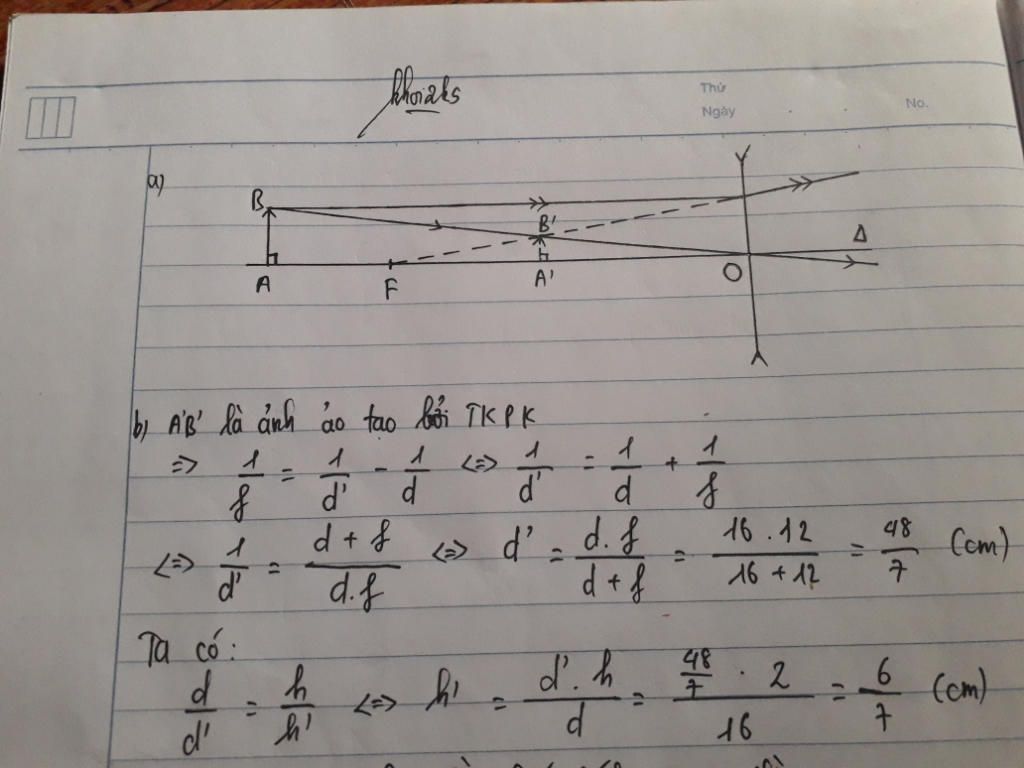 khoi2k5
Thứ
Ngày
No.
a)
B
B'
Δ
A
F
A'
O
b) A'B' là ảnh ảo tạo bởi TKPK
=> 1/f = 1/d' - 1/d <=> 1/d' = 1/d + 1/f
<=> 1/d' = d + f / d.f <=> d' = d.f / d + f = 16.12 / 16 + 12 = 48/7 (cm)
Ta có:
d/d' = h/h' <=> h' = d'.h / d = 48/7 . 2 / 16 = 6/7 (cm)